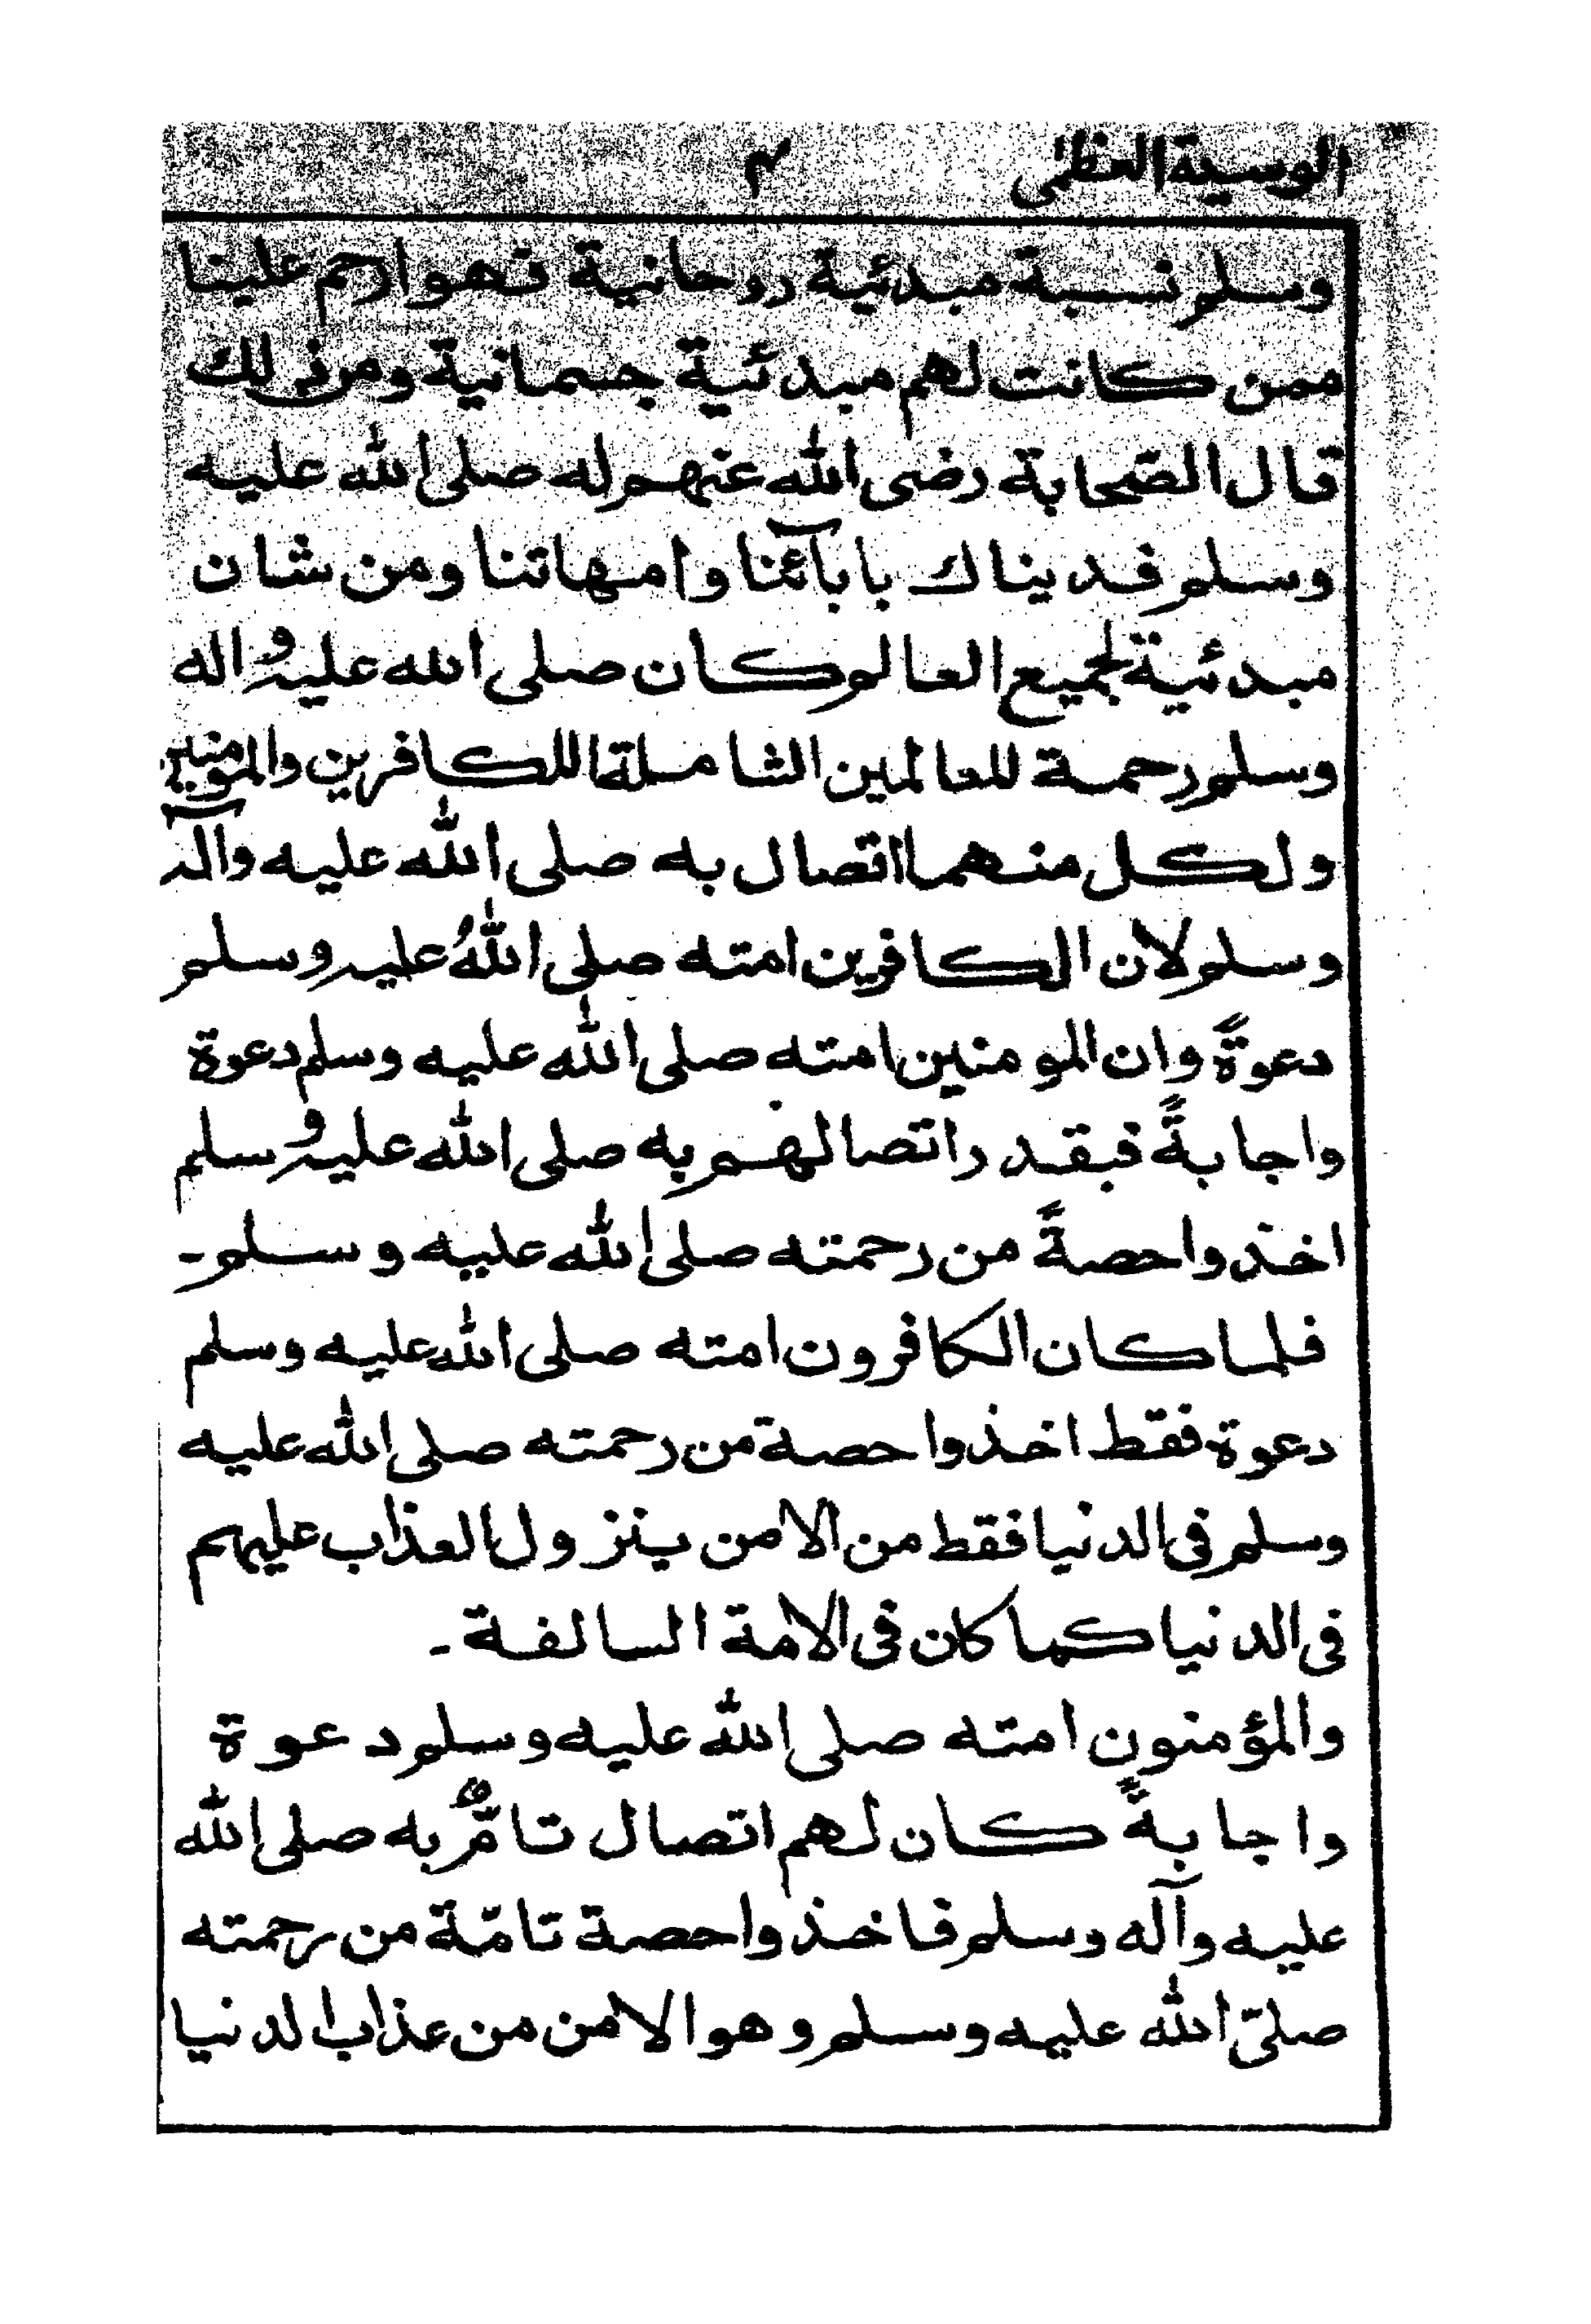 الوسيلة العظمى ٣
وسلم نسبة مبدئية روحانية فهو ارحم علينا
ممن كانت لهم مبدئية جسمانية ومن ذلك
قال الصحابة رضى الله عنهم له صلى الله عليه
وسلم فديناك بابآئنا وامهاتنا ومن شان
مبدئية لجميع العالم كان صلى الله عليه واله
وسلم رحمة للعالمين الشاملة للكافرين والمومنين
ولكل منهما اتصال به صلى الله عليه وآله
وسلم لان الكافرين امته صلى اللهُ عليه وسلم
دعوةً وان المومنين امته صلى الله عليه وسلم دعوة
واجابةً فبقدر اتصالهم به صلى الله عليه وسلم
اخذوا حصةً من رحمته صلى الله عليه وسلم ـ
فلما كان الكافرون امته صلى الله عليه وسلم
دعوة فقط اخذوا حصة من رحمته صلى الله عليه
وسلم فى الدنيا فقط من الامن بنزول العذاب عليهم
فى الدنيا كما كان فى الامة السالفة ـ
والمؤمنون امته صلى الله عليه وسلم دعوة
واجابةً كان لهم اتصال تامٌّ به صلى الله
عليه وآله وسلم فاخذوا حصة تامّة من رحمته
صلىّ الله عليه وسلم وهو الامن من عذاب الدنيا